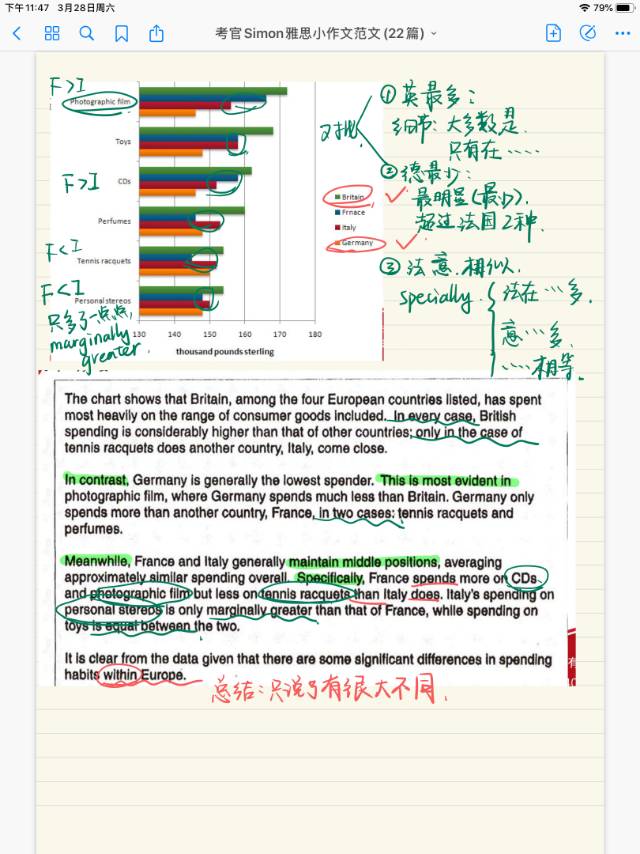 下午11:47 3月28日周六
79%
考官Simon雅思小作文范文(22篇)
F>I
Photographic film
Toys
F>I
CDs
Perfumes
F<I
Tennis racquets
F<I
Personal stereos
只多了一点点,
marginally
greater.
130 140 150 160 170 180
thousand pounds sterling
Britain
Frnace
Italy
Germany
对比
①英最多:
细节:大多数是
只有在……
②德最少:
最明显(最少).
超过法国2种.
③法意.相似.
specially
法在…多.
意…多.
……相等.
The chart shows that Britain, among the four European countries listed, has spent
most heavily on the range of consumer goods included. In every case, British
spending is considerably higher than that of other countries; only in the case of
tennis racquets does another country, Italy, come close.
In contrast, Germany is generally the lowest spender. This is most evident in
photographic film, where Germany spends much less than Britain. Germany only
spends more than another country, France, in two cases: tennis racquets and
perfumes.
Meanwhile, France and Italy generally maintain middle positions, averaging
approximately similar spending overall. Specifically, France spends more on CDs
and photographic film but less on tennis racquets than Italy does. Italy's spending on
personal stereos is only marginally greater than that of France, while spending on
toys is equal between the two.
It is clear from the data given that there are some significant differences in spending
habits within Europe.
总结:只说了有很大不同.